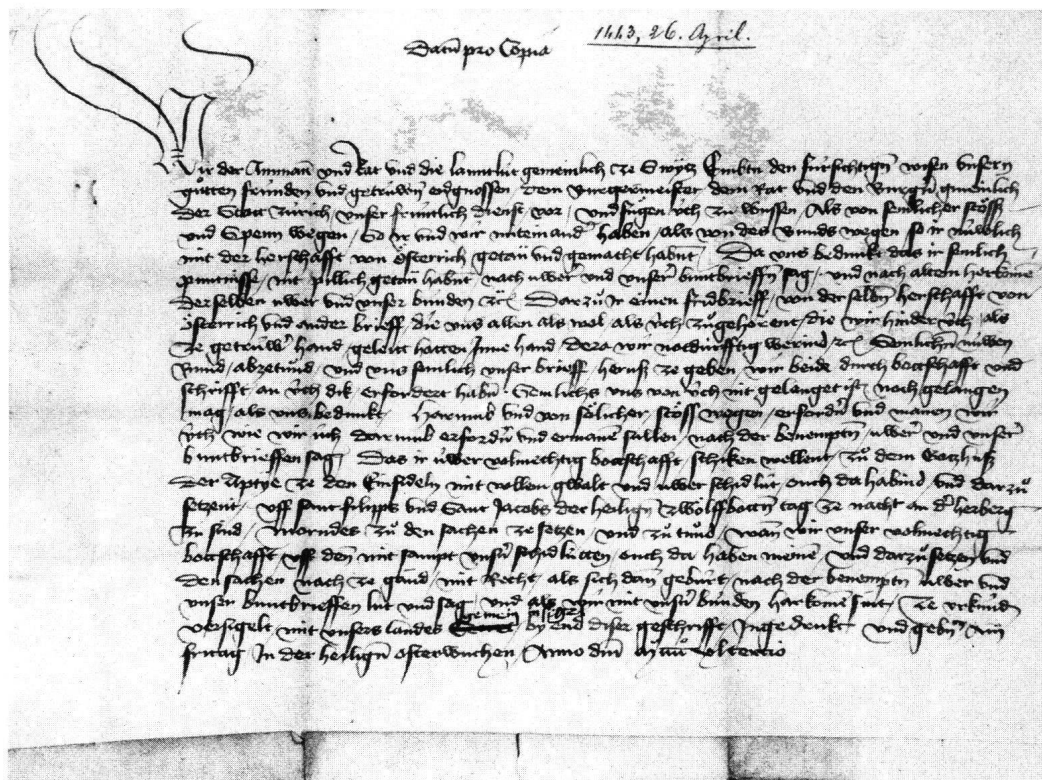 Datum pro Copia
1443, 26. April.
Wir der Amman und Rat und die lanntlüt gemeinlich ze Swytz Embieten den fürsichtigen wysen unsern
gutten fründen und getrüwen eidgnossen, dem Burgermeister dem Rat und den Burgern gmeinlich
der Statt Zürich, unser früntlich dienst vor, und fügen üch zu wüssen, Als von semlicher stöss
und Spenn wegen, So ir und wir miteinander haben, als von des Bunds wegen so ir nüwlich
mit der herschafft von Österrich getan und gemacht habent, Da uns bedunkt das ir semlich
püntnisse, nit pillich getan habint, nach uwer und unser buntbrieffen sag, und nach altem herkomen
derselben uwer und unser bünden etc. Dar zu Ir einen fridbrieff, von derselben herschafft von
Österrich und ander brieff, die uns allen als wol als üch zugehörent, die wir hinder üch, als
ze getrüwer hand, geleit hatten Inne hand, dera wir notdürfftig werind, etc. Semlichen nüwen
Bund, abzetund, und uns semlich unser brieff, heruss ze geben, wir beide durch bottschafft und
schrifft, an üch dik, erfordert haben, Semlichs uns von üch nit gelanget ist, noch gelangen
mag, als uns bedunkt, Harumb und von sölicher stöss wegen, erfordern und manen wir
üch, wie wir üch darumb erfordern und ermanen sullen, nach der benempten, uwer und unser
buntbrieffen sag, Das ir uwer volmechtig bottschafft schiken wellent, zu dem Gotzhuss
der Aptye ze den Einsideln mit vollen gwalt und uwer schidlüt, ouch da habind, und darzu
setzent, uff sant philipps und Sant Jacobs der heiligen zwölffbotten tag ze nacht an der herberg
zu sind, morndes zu den sachen ze setzen, und zu tund, wan wir unser volmechtig
bottschafft uff den mit sampt unsern schidlütten, ouch da haben meinen, und darzu setzen und
den sachen nach ze gand, mit Recht, als sich dann gebürt, nach der benempten uwer und
unser buntbrieffen lut und sag, und als wir mit unsern bünden harkomen sint, Ze urkünd
versigelt mit unsers landes gemein Insigel, by end diser geschrifft Ingedrukt, und geben am
fritag In der heiligen osterwuchen, Anno dm mcccc xl tertio